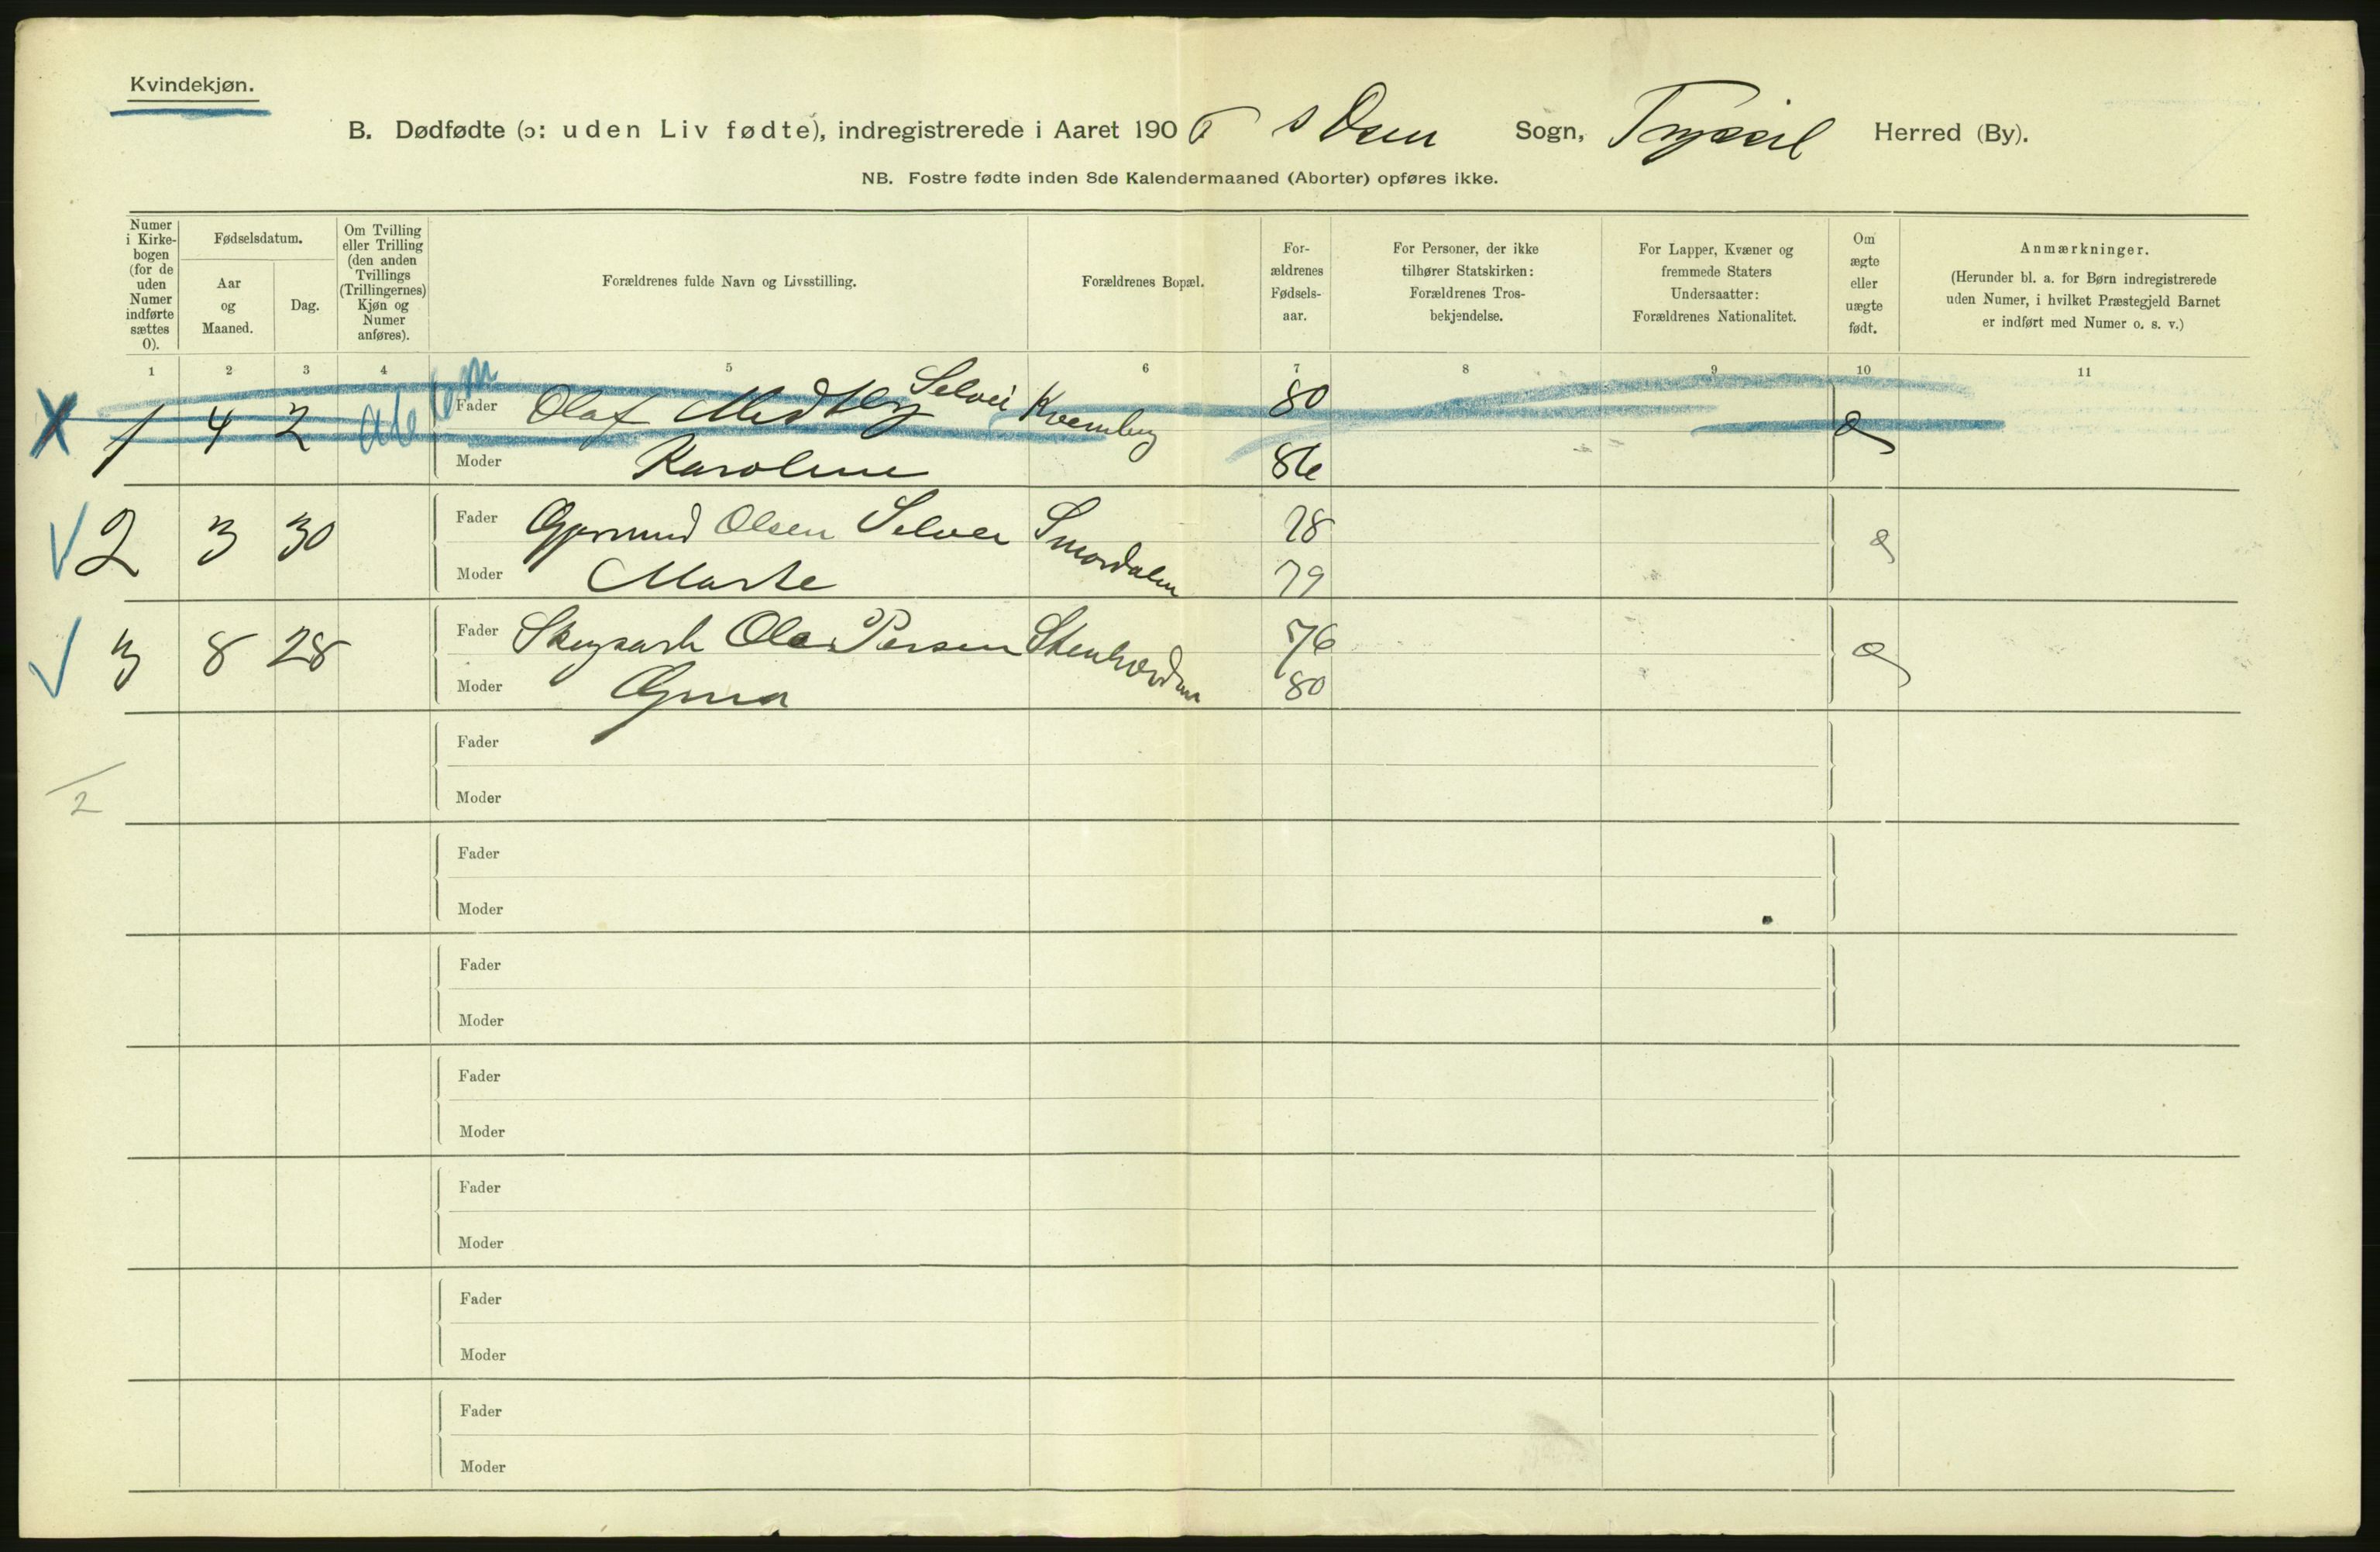 Kvindekjøn.
B. Dødfødte (ɔ: uden Liv fødte), indregistrerede i Aaret 190 s Osen Sogn, Trysil Herred (By).
NB. Fostre fødte inden 8de Kalendermaaned (Aborter) opføres ikke.
Numer
i Kirke-
bogen
(for de
uden
Numer
indførte
sættes
0).
Fødselsdatum.
Aar
og
Maaned.
Dag.
Om Tvilling
eller Trilling
(den anden
Tvillings
(Trillingernes)
Kjøn og
Numer
anføres).
Forældrenes fulde Navn og Livsstilling.
Forældrenes Bopæl.
For-
ældrenes
Fødsels-
aar.
For Personer, der ikke
tilhører Statskirken:
Forældrenes Tros-
bekjendelse.
For Lapper, Kvæner og
fremmede Staters
Undersaatter:
Forældrenes Nationalitet.
Om
ægte
eller
uægte
født.
Anmærkninger.
(Herunder bl. a. for Børn indregistrerede
uden Numer, i hvilket Præstegjeld Barnet
er indført med Numer o. s. v.)
1 2 3 4 5 6 7 8 9 10 11
1 4 2 Fader Olaf Medby Selvei 80
Moder Karoline
2 3 30 Fader Gjermund Olsen Selveier Smordalen 78
Moder Marte 79
3 8 28 Fader Ole Persen 76
Moder Gina 80
Fader
Moder
2
Fader
Moder
Fader
Moder
Fader
Moder
Fader
Moder
Fader
Moder
Fader
Moder